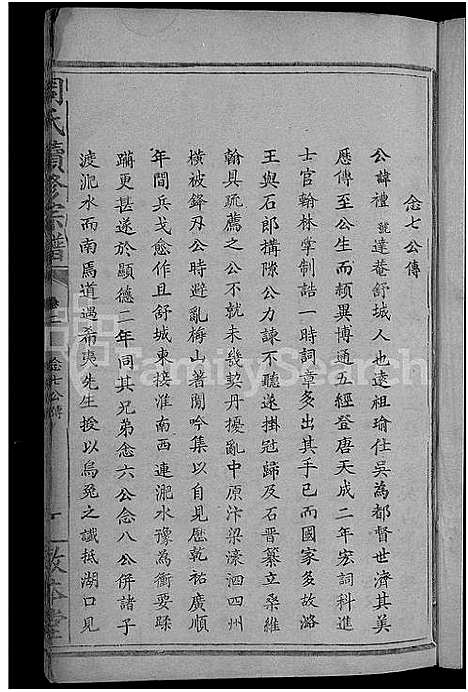 念七公傳
公諱禮號達菴舒城人也遠祖瑜仕吳為都督世濟其美
歷傳至公生而穎異博通五經登唐天成二年宏詞科進
士官翰林掌制誥一時詞章多出其手已而國家多故潞
王與石郎搆隙公力諫不聽遂掛冠歸及石晋纂立桑維
翰具疏薦之公不就未幾契丹擾亂中原汴梁濠泗四州
橫被鋒刃公時避亂梅山著閒吟集以自見歷乾祐廣順
年間兵戈愈作且舒城東接淮南西連淝水豫為衝要蹂
躪更甚遂於顯德二年同其兄弟念六公念八公併諸子
渡淝水而南馬道遇希夷先生授以烏兔之讖抵湖口見
周氏續修宗譜
卷二
念七公傳
一
敦本堂
FamilySearch